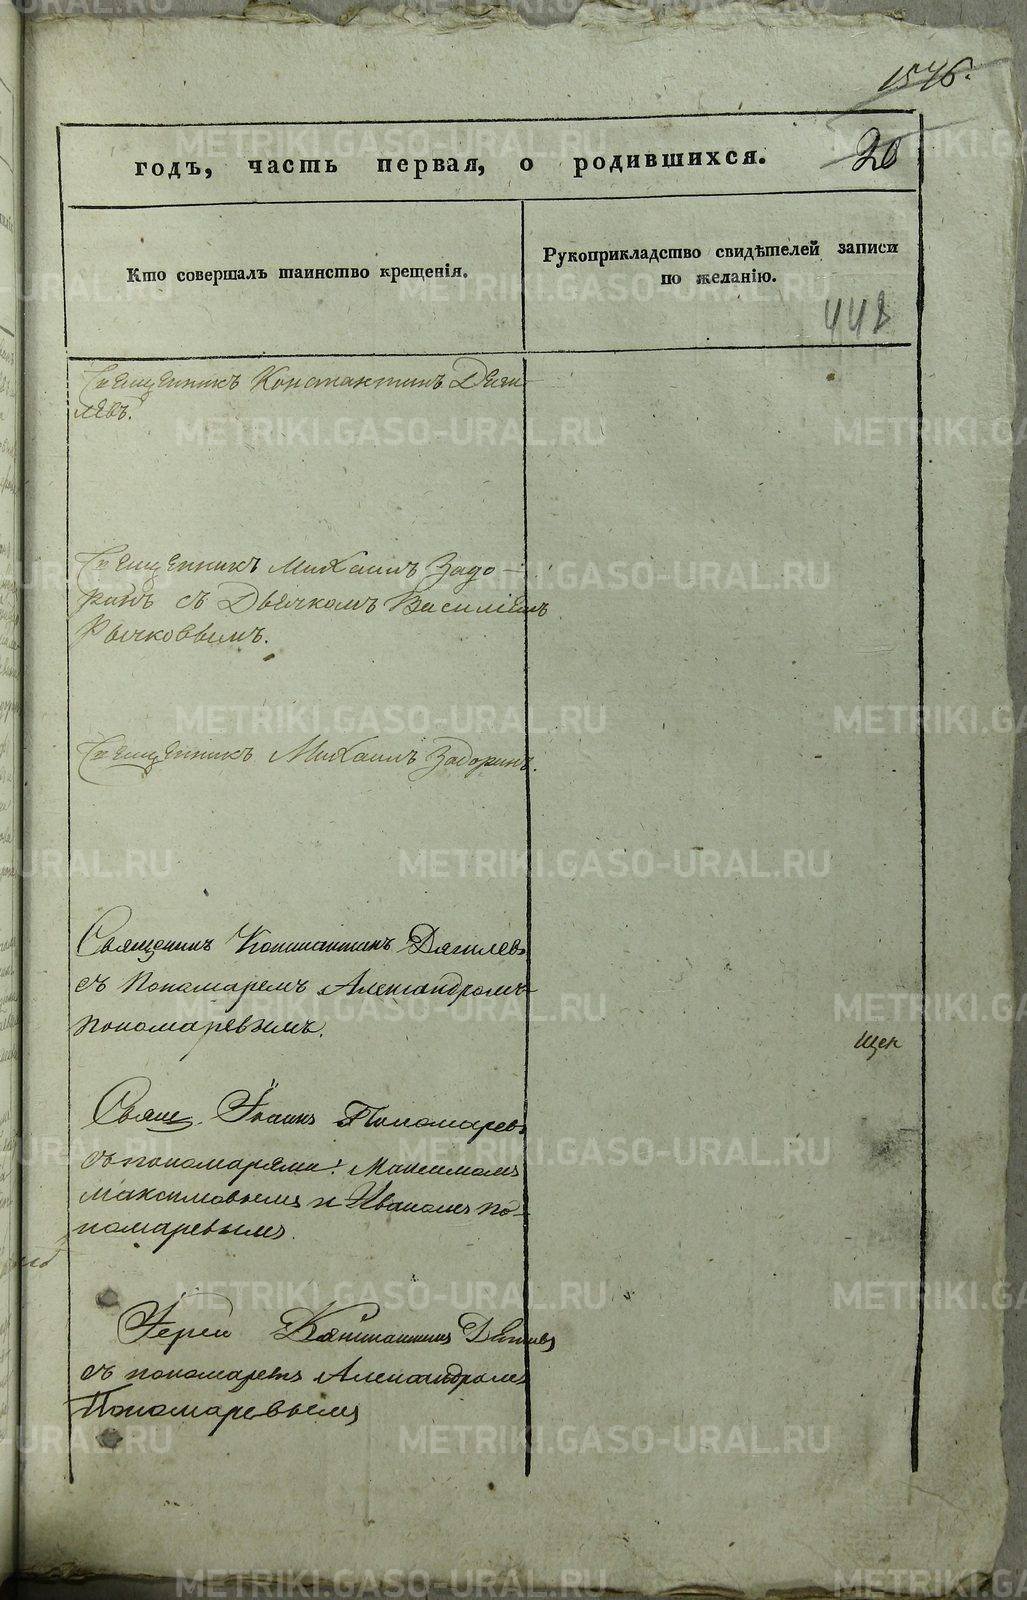 1546.
годъ, часть первая, о родившихся. 20
Кто совершалъ таинство крещенія.
Рукоприкладство свидѣтелей записи
по желанію.
448
Священникъ Константинъ Дяги-
левъ.
Священникъ Михаилъ Задо-
ринъ съ Дьячкомъ Василіемъ
Рычковымъ.
Священникъ Михаилъ Задоринъ.
Священникъ Константинъ Дягилевъ
съ Пономаремъ Александромъ
Пономаревымъ.
Свящ. Іоаннъ Пономаревъ
съ пономарями: Максимомъ
Максимовымъ и Иваномъ По-
номаревымъ.
Іерей Константинъ Дягилевъ
съ пономаремъ Александромъ
Пономаревымъ
METRIKI.GASO-URAL.RU